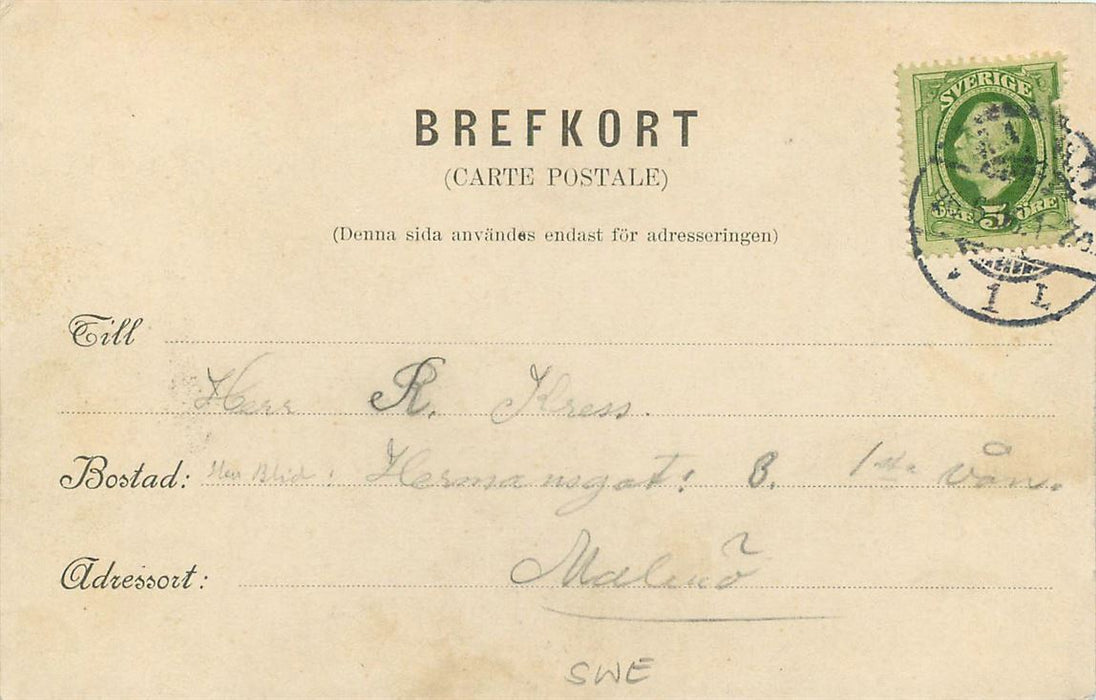 BREFKORT
(CARTE POSTALE)
(Denna sida användes endast för adresseringen)
SVERIGE
5 ÖRE
Till
Herr R. Kress.
Bostad: Hermansgat: 8. 1sta vån.
Adressort: Malmö
SWE
1 L